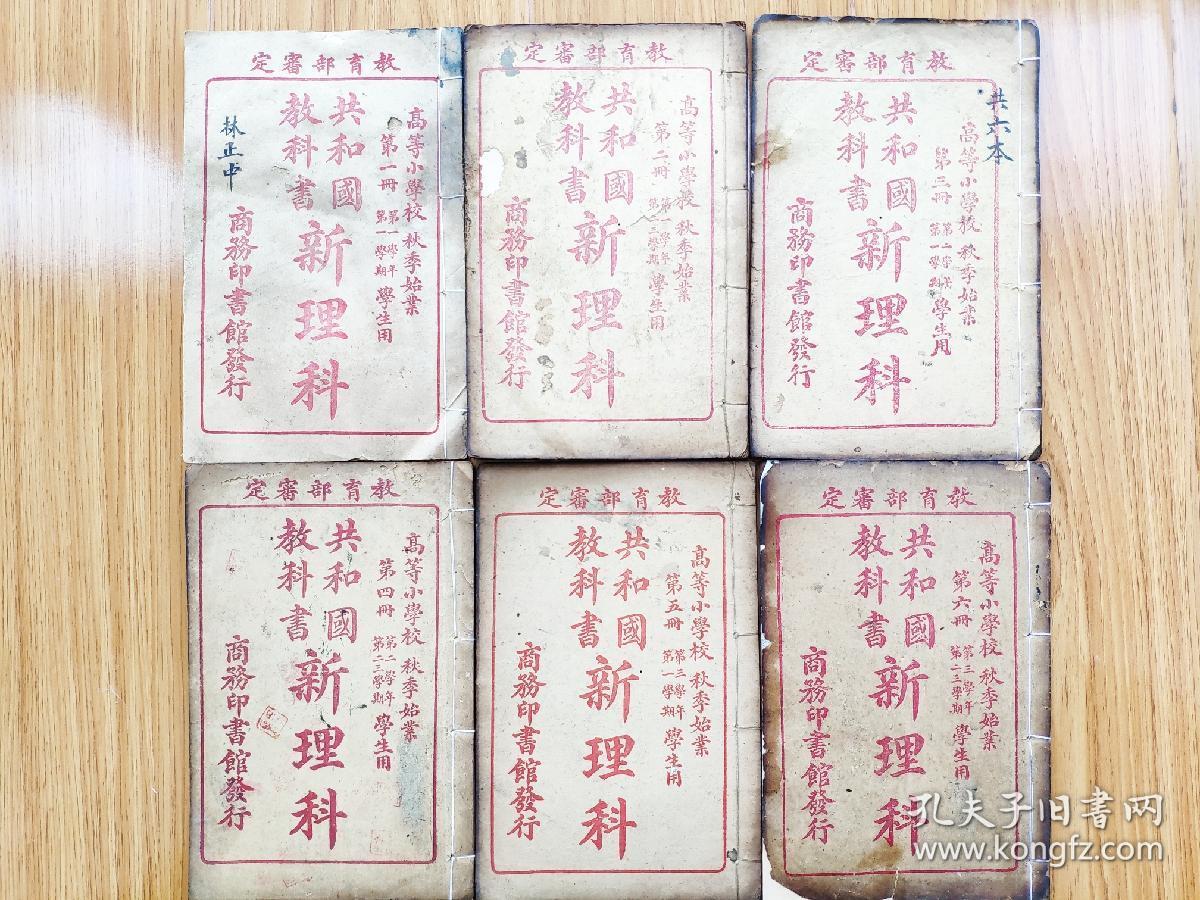 教育部審定
高等小學校 秋季始業
第一冊 第一學年 第一學期 學生用
共和國
教科書
新理科
商務印書館發行
林正中
教育部審定
高等小學校 秋季始業
第二冊 第一學年 第二三學期 學生用
共和國
教科書
新理科
商務印書館發行
教育部審定
共六本
高等小學校 秋季始業
第三冊 第二學年 第一學期 學生用
共和國
教科書
新理科
商務印書館發行
教育部審定
高等小學校 秋季始業
第四冊 第二學年 第二三學期 學生用
共和國
教科書
新理科
商務印書館發行
教育部審定
高等小學校 秋季始業
第五冊 第三學年 第一學期 學生用
共和國
教科書
新理科
商務印書館發行
教育部審定
高等小學校 秋季始業
第六冊 第三學年 第二三學期 學生用
共和國
教科書
新理科
商務印書館發行
孔夫子旧书网
www.kongfz.com